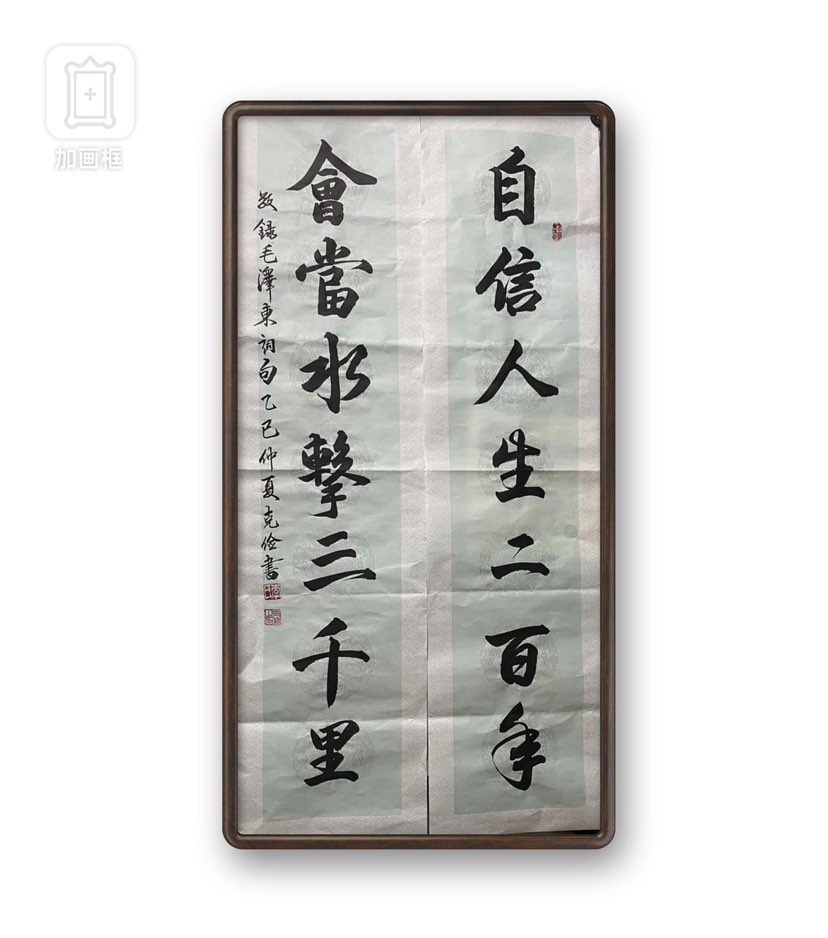 加画框
自信人生二百年
會當水擊三千里
敬錄毛澤東詞句乙巳仲夏克儉書